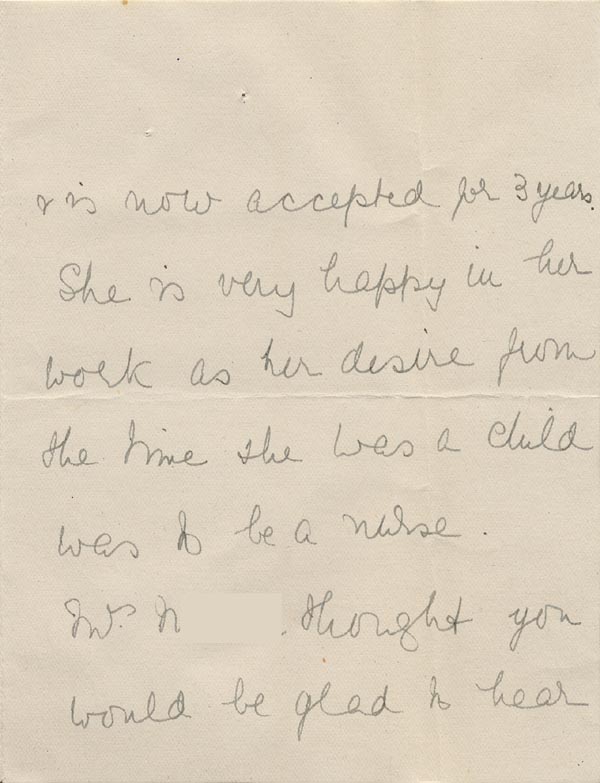 & is now accepted for 3 years.
She is very happy in her
work as her desire from
the time she was a child
was to be a nurse.
Mrs. N . thought you
would be glad to hear